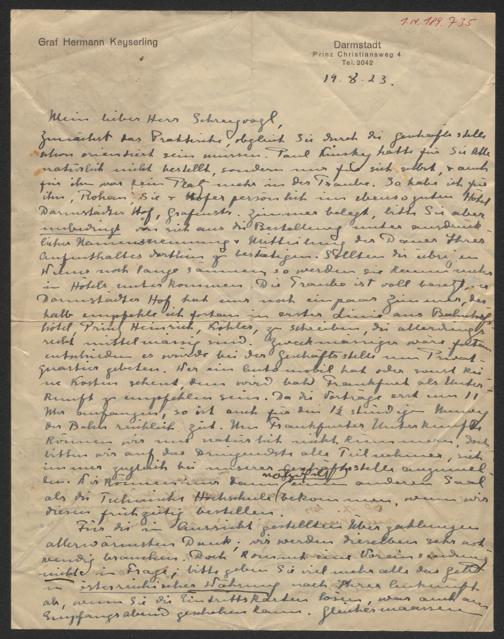 I.N. 189.735
Graf Hermann Keyserling
Darmstadt
Prinz Christiansweg 4
Tel. 2042
19.8.23.
Mein lieber Herr Schreyvogl,
zunächst das Praktische, obgleich Sie durch die Geschäftsstelle
schon orientiert sein müssen. Paul hatte für Sie alle
natürlich nicht bestellt, sondern nur für sich selbst, & auch
für ihn war kein Platz mehr in der Traube. So habe ich für
ihn, Rohan, Sie & Hofer persönlich im ebenso guten Hotel
Darmstädter Hof, Zimmer belegt, bitte Sie aber
unbedingt von sich aus die Bestellung unter ausdrück-
licher Namensnennung & Mitteilung der Dauer Ihres
Aufenthaltes dorthin zu bestätigen. Sollten die übrigen
Wiener noch lange säumen, so werden sie keine mehr
in Hotels unterkommen. Die Traube ist voll besetzt,
Darmstädter Hof hat nur noch ein paar Zimmer, des-
halb empfehle ich fortan in erster Linie ans Bahnhof
hotel Prinz Heinrich, Köhler, zu schreiben, die allerdings
recht mittelmässig sind. Zweckmässiger wäre
entschieden es würde bei der Geschäftsstelle um Privat-
quartier gebeten. Wer ein Automobil hat oder sonst kei-
ne Kosten scheut, dem wird bald Frankfurt als Unter-
kunft zu empfehlen sein. Da die Vorträge erst um 11
Uhr anfangen, so ist auch für den 1/2 stündigen
der Bahn reichlich Zeit. Um Frankfurter Unterkünfte
können wir uns natürlich nicht kümmern, doch
bitten wir auf das Dringendste alle Teilnehmer, sich
immer zugleich bei unserer Geschäftsstelle anzumel-
den. Wir können nur dann womöglich einen anderen Saal
als die Technische Hochschule bekommen, wenn wir
diesen frühzeitig bestellen.
Für die in Aussicht gestellten Überzahlungen
allerwärmsten Dank; wir werden dieselben sehr not-
wendig brauchen. Doch kommt eine Vereins
nicht in Frage; bitte geben Sie viel mehr alle das Geld
in österreichischer Währung nach Ihrer Ankunft
ab, wenn Sie die Eintrittskarten lösen, was auch am
Empfangsabend geschehen kann. Gleichermaassen